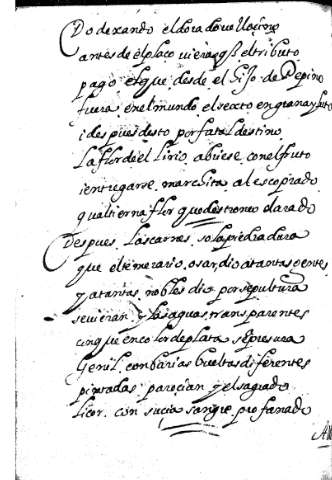 Do dexando el dorado vellocino
antes de el plaço viera q̃ el tributo
pago el que desde el hijo de Pepino
fuera en el mundo el sexto en gran
i despues desto por fatal destino
la flor de el lirio, abiese con el fruto
i entregarse marchita al
qual tierna flor que destronco el arado
Despues, las carnes so la piedra dura
que el temerario osar, dio a tantas gentes
y a tantas nobles dio por sepultura
se vieran y las aguas transparentes
en color de plata se apresura
Genil. con barias bueltas diferentes
pintadas parecian y el sagrado
licor. con sucia sangre profanado